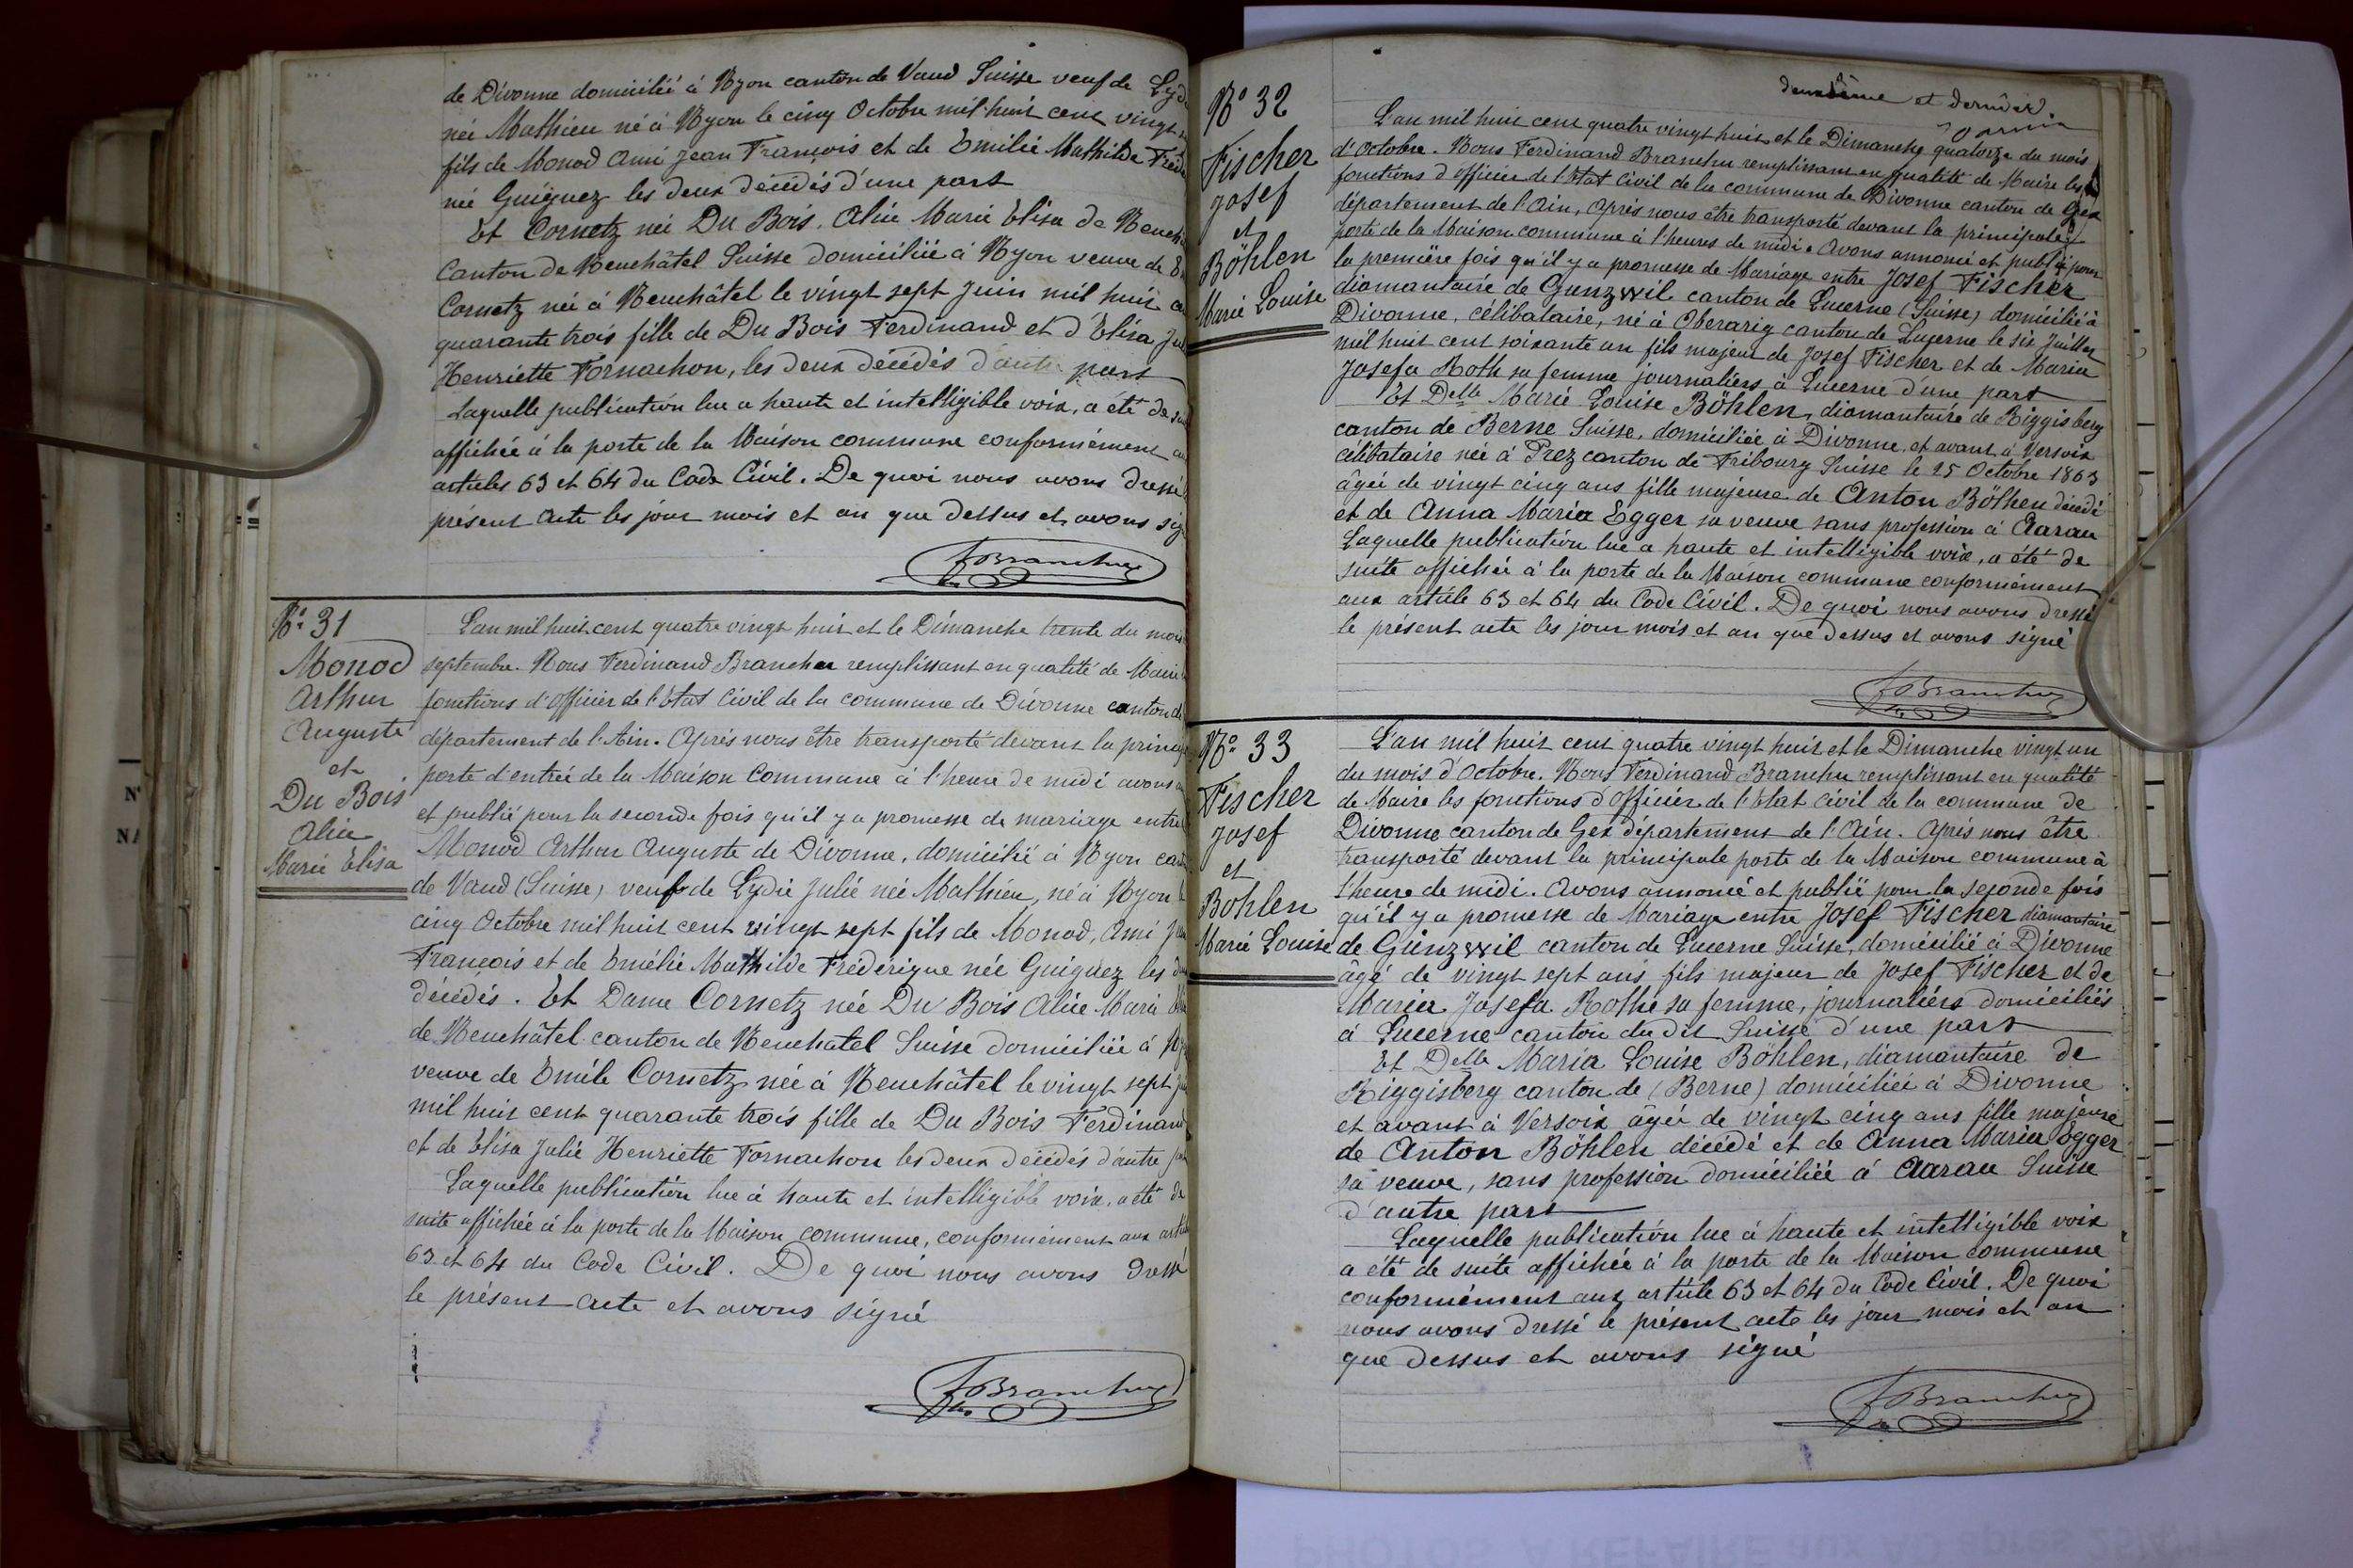 de Divonne domicilié à Nyon canton de Vaud Suisse veuf de
née Mathieu né à Nyon le cinq Octobre mil huit cent vingt
fils de Monod Ami Jean François et de Emilie Mathilde
née Guiguez les deux décédés d'une part
Et Cornetz née Du Bois. Alice Marie Elisa de
Canton de Neuchâtel Suisse domiciliée à Nyon veuve de
Cornetz née à Neuchâtel le vingt sept Juin mil huit
quarante trois fille de Du Bois Ferdinand et d'Elisa
Henriette Fornachon, les deux décédés d'autre part
Laquelle publication lue a haute et intelligible voix, a été de
affichée à la porte de la Maison commune conformément
articles 63 et 64 du Code Civil. De quoi nous avons dressé
présent acte les jour mois et an que dessus et avons
FBranchu
No 31
Monod
Arthur
Auguste
et
Du Bois
Alice
Marie Elisa
L'an mil huit cent quatre vingt huit et le Dimanche trente du mois
septembre. Nous Ferdinand Branchu remplissant en qualité de Maire
fonctions d'officier de l'Etat Civil de la commune de Divonne canton de
département de l'Ain. Après nous être transporté devant la
porte d'entrée de la Maison Commune à l'heure de midi avons
et publié pour la seconde fois qu'il y a promesse de mariage entre
Monod Arthur Auguste de Divonne, domicilié à Nyon
de Vaud (Suisse) veuf de Lydie Julie née Mathieu, né à Nyon
cinq Octobre mil huit cent vingt sept fils de Monod, Ami
François et de Emélie Mathilde Fréderique née Guiguez les
décédés. Et Dame Cornetz née Du Bois Alice Marie
de Neuchâtel canton de Neuchatel Suisse domiciliée à
veuve de Emile Cornetz née à Neuchâtel le vingt sept
mil huit cent quarante trois fille de Du Bois Ferdinand
et de Elisa Julie Henriette Fornachon les deux décédés d'autre
Laquelle publication lue à haute et intelligible voix, a été de
suite affichée à la porte de la Maison commune, conformément aux
63 et 64 du Code Civil. De quoi nous avons dressé
le présent acte et avons signé
FBranchu
deuxième et dernier
No 32
Fischer
Josef
et
Böhlen
Marie Louise
L'an mil huit cent quatre vingt huit et le Dimanche quatorze du mois
d'Octobre. Nous Ferdinand Branchu remplissant en qualité de Maire les
fonctions d'officier de l'Etat Civil de la commune de Divonne canton de Gex
département de l'Ain, Après nous être transporté devant la principale
porte de la Maison commune à l'heures de midi. Avons annoncé et publié pour
la première fois qu'il y a promesse de Mariage entre Josef Fischer
diamantaire de Gunzwil canton de Lucerne (Suisse) domicilié à
Divonne, célibataire, né à Oberarig canton de Lucerne le six Juillet
mil huit cent soixante un fils majeur de Josef Fischer et de Maria
Josefa Roth sa femme journaliers à Lucerne d'une part
Et Delle Marie Louise Böhlen, diamantaire de Riggisberg
canton de Berne Suisse, domiciliée à Divonne, et avant à Versoix
célibataire née à Prez canton de Fribourg Suisse le 15 Octobre 1863
âgée de vingt cinq ans fille majeure de Anton Böhlen décédé
et de Anna Maria Egger sa veuve sans profession à Aarau
Laquelle publication lue a haute et intelligible voix, a été de
suite affichée à la porte de la Maison commune conformément
aux article 63 et 64 du Code Civil. De quoi nous avons dressé
le présent acte les jour mois et an que dessus et avons signé
FBranchu
No 33
Fischer
Josef
et
Bohlen
Marie Louise
L'an mil huit cent quatre vingt huit et le Dimanche vingt un
du mois d'Octobre. Nous Ferdinand Branchu remplissant en qualité
de Maire les fonctions d'officier de l'Etat Civil de la commune de
Divonne canton de Gex département de l'Ain. Après nous être
transporté devant la principale porte de la Maison commune à
l'heure de midi. Avons annoncé et publié pour la seconde fois
qu'il y a promesse de Mariage entre Josef Fischer diamantaire
de Günzwil canton de Lucerne Suisse, domicilié à Divonne
âgé de vingt sept ans fils majeur de Josef Fischer et de
Maria Josefa Rothe sa femme, journaliers domiciliés
à Lucerne canton du dit Suisse d'une part
Et Delle Maria Louise Böhlen, diamantaire de
Riggisberg canton de (Berne) domiciliée à Divonne
et avant à Versoix âgée de vingt cinq ans fille majeure
de Anton Böhlen décédé et de Anna Maria Egger
sa veuve, sans profession domiciliée à Aarau Suisse
d'autre part
Laquelle publication lue à haute et intelligible voix
a été de suite affichée à la porte de la Maison commune
conformément aux article 63 et 64 du Code Civil. De quoi
nous avons dressé le présent acte les jour mois et an
que dessus et avons signé
FBranchu